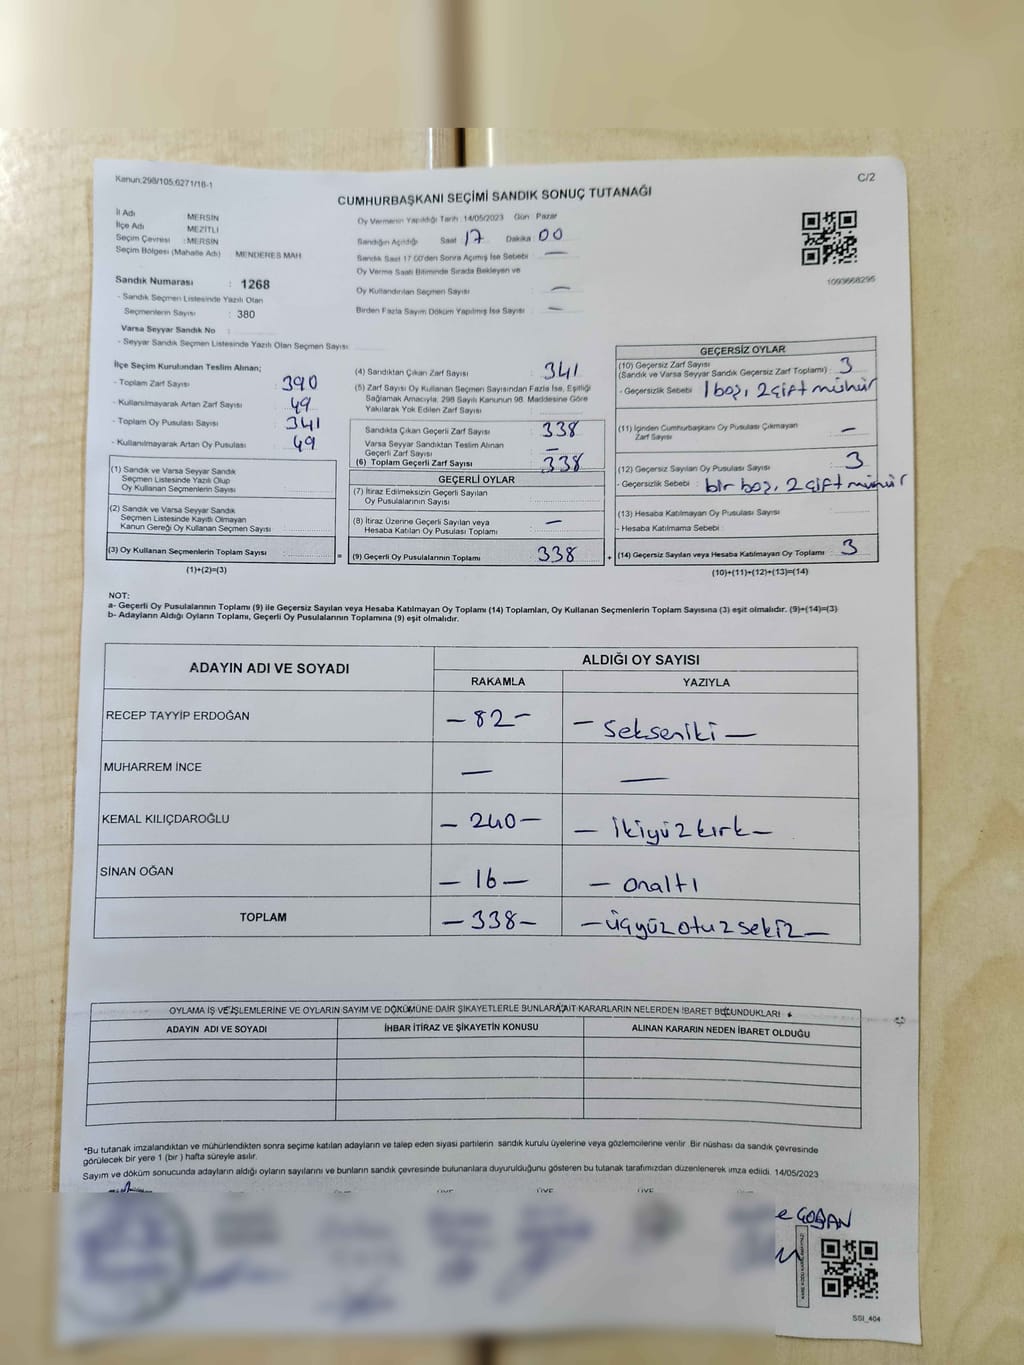 Kanun:298/105,6271/18-1
C/2
CUMHURBAŞKANI SEÇİMİ SANDIK SONUÇ TUTANAĞI
İl Adı : MERSİN
İlçe Adı : MEZİTLİ
Seçim Çevresi : MERSİN
Seçim Bölgesi (Mahalle Adı) : MENDERES MAH.
Sandık Numarası : 1268
- Sandık Seçmen Listesinde Yazılı Olan
Seçmenlerin Sayısı : 380
Varsa Seyyar Sandık No :
- Seyyar Sandık Seçmen Listesinde Yazılı Olan Seçmen Sayısı:
Oy Vermenin Yapıldığı Tarih :14/05/2023 Gün : Pazar
Sandığın Açıldığı Saat : 17 Dakika : 00
Sandık Saat 17:00'den Sonra Açımış İse Sebebi : —
Oy Verme Saati Bitiminde Sırada Bekleyen ve
Oy Kullandırılan Seçmen Sayısı : —
Birden Fazla Sayım Döküm Yapılmış İse Sayısı : —
1093668295
İlçe Seçim Kurulundan Teslim Alınan;
- Toplam Zarf Sayısı : 390
- Kullanılmayarak Artan Zarf Sayısı : 49
- Toplam Oy Pusulası Sayısı : 341
- Kullanılmayarak Artan Oy Pusulası : 49
(1) Sandık ve Varsa Seyyar Sandık
Seçmen Listesinde Yazılı Olup
Oy Kullanan Seçmenlerin Sayısı :
(2) Sandık ve Varsa Seyyar Sandık
Seçmen Listesinde Kayıtlı Olmayan
Kanun Gereği Oy Kullanan Seçmen Sayısı :
(3) Oy Kullanan Seçmenlerin Toplam Sayısı :
(1)+(2)=(3)
(4) Sandıktan Çıkan Zarf Sayısı : 341
(5) Zarf Sayısı Oy Kullanan Seçmen Sayısından Fazla İse, Eşitliği
Sağlamak Amacıyla, 298 Sayılı Kanunun 98. Maddesine Göre
Yakılarak Yok Edilen Zarf Sayısı :
Sandıkta Çıkan Geçerli Zarf Sayısı : 338
Varsa Seyyar Sandıktan Teslim Alınan
Geçerli Zarf Sayısı : —
(6) Toplam Geçerli Zarf Sayısı : 338
GEÇERLİ OYLAR
(7) İtiraz Edilmeksizin Geçerli Sayılan
Oy Pusulalarının Sayısı :
(8) İtiraz Üzerine Geçerli Sayılan veya
Hesaba Katılan Oy Pusulası Toplamı : —
= (9) Geçerli Oy Pusulalarının Toplamı : 338 +
GEÇERSİZ OYLAR
(10) Geçersiz Zarf Sayısı
(Sandık ve Varsa Seyyar Sandık Geçersiz Zarf Toplamı) : 3
- Geçersizlik Sebebi : 1 boş, 2 çift mühür
(11) İçinden Cumhurbaşkanı Oy Pusulası Çıkmayan
Zarf Sayısı : —
(12) Geçersiz Sayılan Oy Pusulası Sayısı : 3
- Geçersizlik Sebebi : bir boş, 2 çift mühür
(13) Hesaba Katılmayan Oy Pusulası Sayısı :
- Hesaba Katılmama Sebebi :
(14) Geçersiz Sayılan veya Hesaba Katılmayan Oy Toplamı : 3
(10)+(11)+(12)+(13)=(14)
NOT:
a- Geçerli Oy Pusulalarının Toplamı (9) ile Geçersiz Sayılan veya Hesaba Katılmayan Oy Toplamı (14) Toplamları, Oy Kullanan Seçmenlerin Toplam Sayısına (3) eşit olmalıdır. (9)+(14)=(3)
b- Adayların Aldığı Oyların Toplamı, Geçerli Oy Pusulalarının Toplamına (9) eşit olmalıdır.
ADAYIN ADI VE SOYADI
ALDIĞI OY SAYISI
RAKAMLA YAZIYLA
RECEP TAYYİP ERDOĞAN — 82 — — Sekseniki —
MUHARREM İNCE — —
KEMAL KILIÇDAROĞLU — 240 — — ikiyüzkırk —
SİNAN OĞAN — 16 — — onaltı
TOPLAM — 338 — — üçyüzotuzsekiz —
OYLAMA İŞ VE İŞLEMLERİNE VE OYLARIN SAYIM VE DÖKÜMÜNE DAİR ŞİKAYETLERLE BUNLARA AİT KARARLARIN NELERDEN İBARET BULUNDUKLARI
ADAYIN ADI VE SOYADI İHBAR İTİRAZ VE ŞİKAYETİN KONUSU ALINAN KARARIN NEDEN İBARET OLDUĞU
*Bu tutanak imzalandıktan ve mühürlendikten sonra seçime katılan adayların ve talep eden siyasi partilerin sandık kurulu üyelerine veya gözlemcilerine verilir. Bir nüshası da sandık çevresinde
görülecek bir yere 1 (bir ) hafta süreyle asılır.
Sayım ve döküm sonucunda adayların aldığı oyların sayılarını ve bunların sandık çevresinde bulunanlara duyurulduğunu gösteren bu tutanak tarafımızdan düzenlenerek imza edildi. 14/05/2023
e ÇOBAN
SSI_404